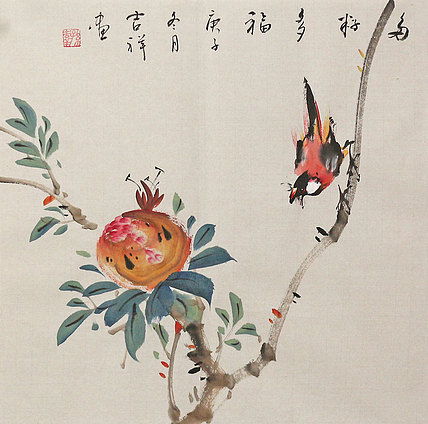 多
籽
多
福
庚子
冬月
吉祥
画